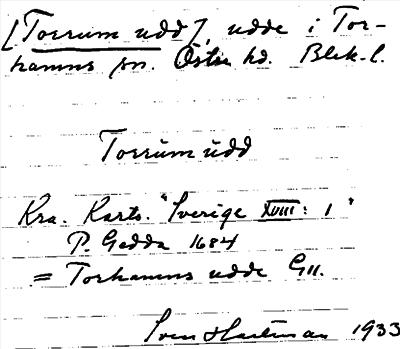 [Torrum udd], udde i Tor-
hamns sn. Östra hd. Blek. l.
Torrum udd
Kra. Karts. "Sverige XVIII: 1"
P. Gedda 1684
= Torhamns udde G11.
Sven Hartman 1933